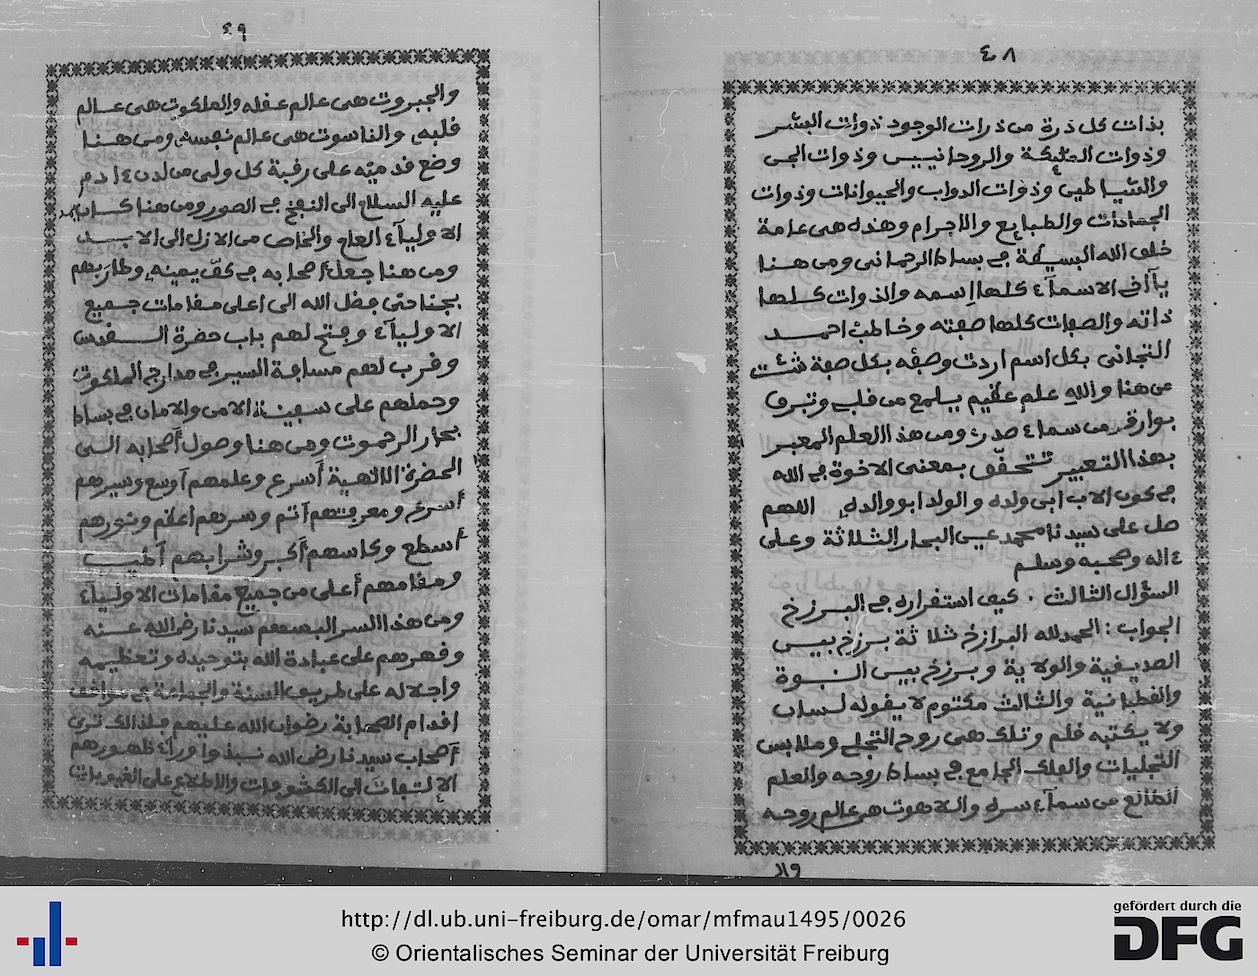 ٤٨
بذات كل ذرة من ذرات الوجود ذوات البشر
وذوات الملٰئكة والروحانيين وذوات الجن
والشياطين وذوات الدواب والحيوانات وذوات
الجمادات والطبايع والاجرام وهذه هى عامة
خلق الله البسيطة في بساط الرحمانى ومن هنا
الاسمآء كلها اسمه والذوات كلها
ذاته والصفات كلها صفته وخاطب احمد
التجانى بكل اسم اردت وصفه بكل صفة شئت
من هنا والله علم عظيم يلمع من قلبى وتبرق
بوارقه من سماء صدرى ومن هذا العلم المعبر
بهذا التعبير تتحقّق بمعنى الاخوة في الله
في كون الاب ابى ولده والولد ابو والده اللهم
صل على سيدنا محمد عين البحار الثلاثة وعلى
ءاله وصحبه وسلم
السؤال الثالث . كيف استقراره في البرزخ
الجواب : الحمد لله البرازخ ثلاثة برزخ بين
الصديقية والولاية وبرزخ بين النبوة
والقطبانية والثالث مكتوم لا يقوله لسان
ولا يكتبه قلم وتلك هى روح التجلى وملابس
التجليات والفلك الجامع في بساط روحه والعلم
الطالع من سمآء سره واللاهوت هى عالم روحه
وال
٤٩
والجبروت هى عالم عقله والملكوت هى عالم
قلبه والناسوت هى عالم نفسه ومن هنا
وضع قدميه على رقبة كل ولى من لدن ءادم
عليه السلام الى النفخ في الصور ومن هنا كان
الاوليآء العام والخاص من الازل الى الابد
ومن هنا جعل أصحابه في كفّ يمينه وطار بهم
بجناحى فضل الله الى اعلى مقامات جميع
الاوليآء وفتح لهم باب حضرة القدس
وقرب لهم مسافة السير في مدارج الملكوت
وحملهم على سفينة الامن والامان في بساط
بحار الرحموت ومن هنا وصول أصحابه الى
الحضرة الالٰهية أسرع وعلمهم أوسع وسيرهم
أسرع ومعرفتهم أتم وسرهم اعظم ونورهم
أسطع وكاسهم أكبر وشرابهم أطيب
ومقامهم أعلى من جميع مقامات الاوليآء
ومن هذا السر سيدنا رضى الله عنه
وقهرهم على عبادة الله بتوحيده وتعظيمه
واجلاله على طريق السنة والجماعة في
اقدام الصحابة رضوان الله عليهم فلذالك ترى
أصحاب سيدنا رضى الله نبذوا ورآء ظهورهم
الالتفات الى الكشوفات والاطلاع على الغيوبات
http://dl.ub.uni-freiburg.de/omar/mfmau1495/0026
© Orientalisches Seminar der Universität Freiburg
gefördert durch die
DFG